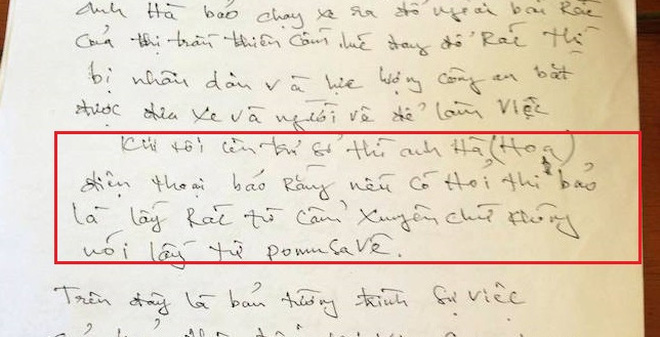 Anh Hà bảo chạy xe ra đổ ngoài bãi Rác
của thị trấn thiên cầm, lúc đang đổ Rác thì
bị nhân dân và lực lượng công an bắt
được đưa xe và người về để làm việc
Khi tôi lên trụ sở thì anh Hà (Hoa)
điện thoại bảo Rằng nếu có Hỏi thì bảo
là lấy Rác từ Cẩm Xuyên chứ không
nói lấy từ pomusa về.
Trên đây là bản tường trình sự việc